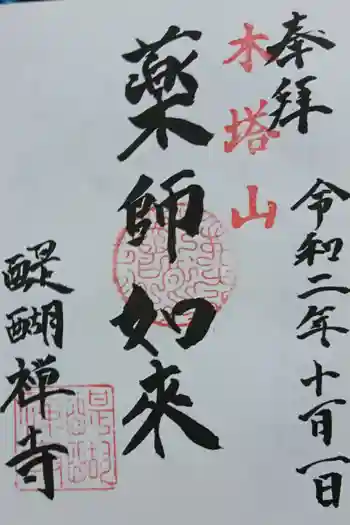 奉拝
木塔山
令和二年十一月一日
薬師如来
醍醐禅寺